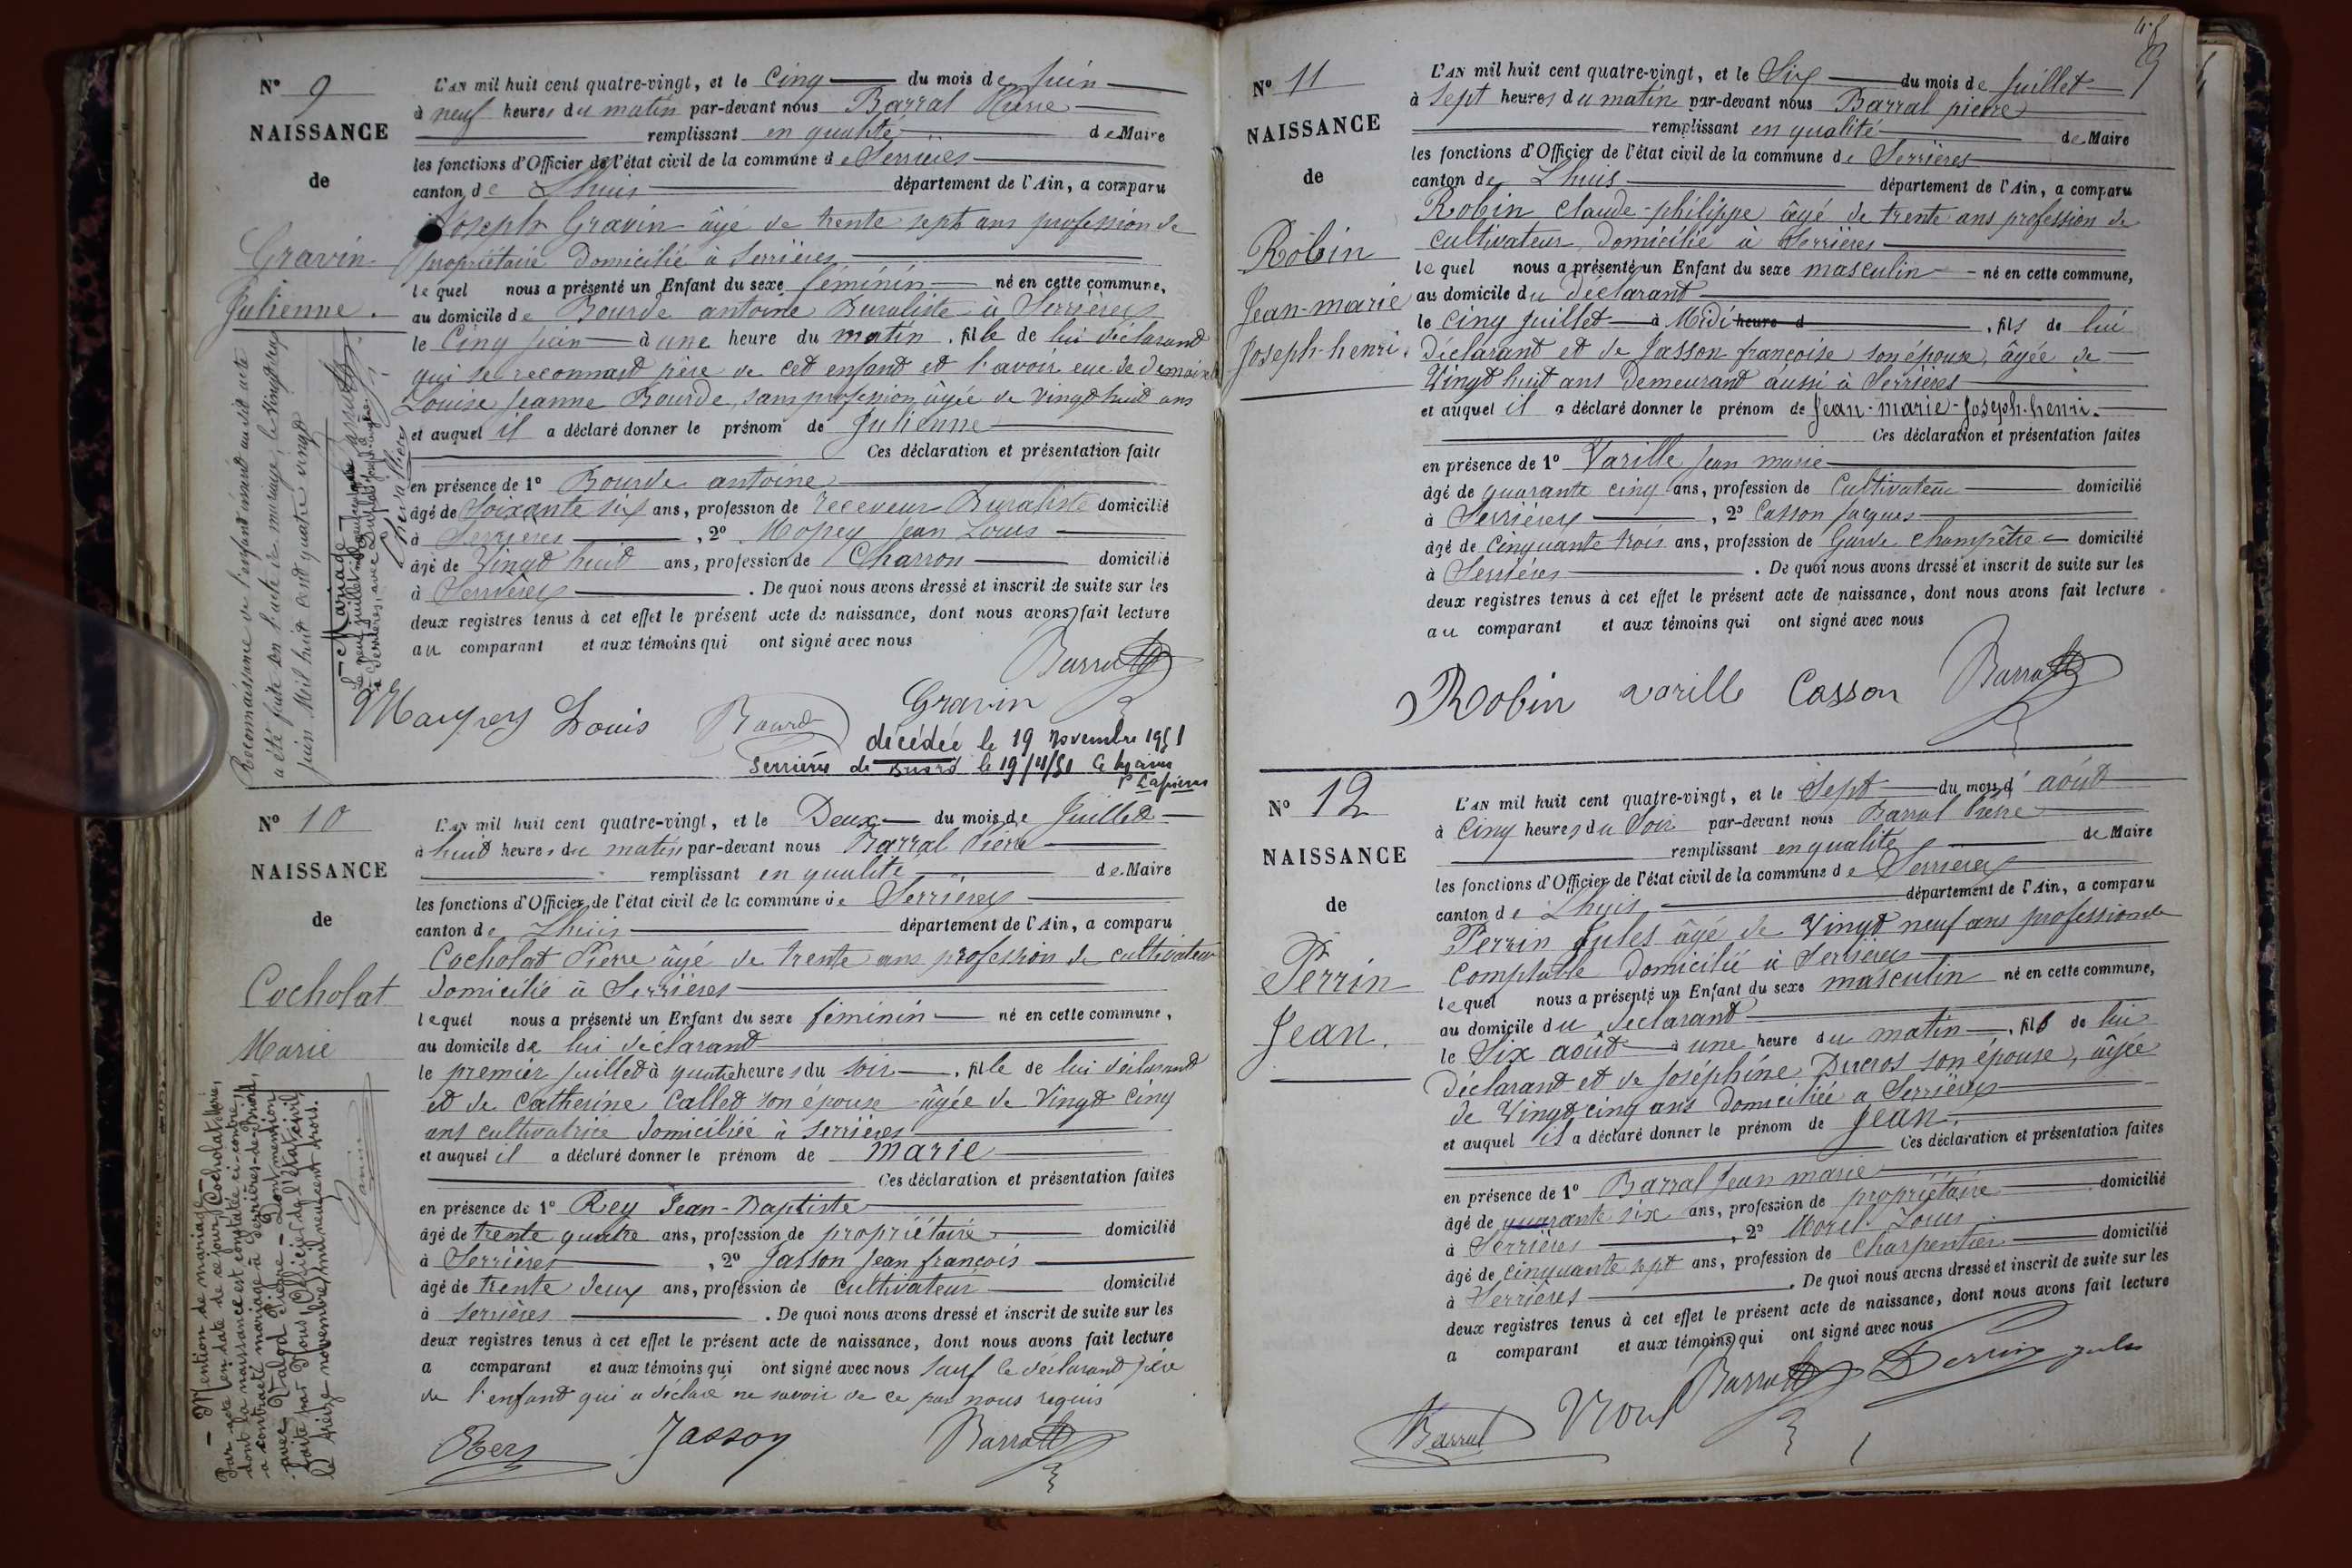 N° 9
NAISSANCE
de
Gravin
Julienne.
L'AN mil huit cent quatre-vingt, et le Cinq du mois de Juin
à neuf heures du matin par-devant nous Barral Pierre
remplissant en qualité de Maire
les fonctions d'Officier de l'état civil de la commune de Serrières
canton de Lhuis département de l'Ain, a comparu
Joseph Gravin âgé de trente sept ans profession de
propriétaire domicilié à Serrières
lequel nous a présenté un Enfant du sexe féminin né en cette commune,
au domicile de Bourde antoine Buraliste à Serrières
le Cinq Juin à une heure du matin, fille de lui déclarant
qui se reconnait père de cet enfant et l'avoir eue de Demoiselle
Louise Jeanne Bourde, sans profession, âgée de vingt huit ans
et auquel il a déclaré donner le prénom de Julienne
Ces déclaration et présentation faite
en présence de 1° Bourde antoine
âgé de Soixante six ans, profession de receveur Buraliste domicilié
à Serrières, 2° Mopey Jean Louis
âgé de Vingt huit ans, profession de Charron domicilié
à Serrières. De quoi nous avons dressé et inscrit de suite sur les
deux registres tenus à cet effet le présent acte de naissance, dont nous avons fait lecture
au comparant et aux témoins qui ont signé avec nous
Barral
Gravin
Louis Bourde
décédée le 19 novembre 1951
Serrières de Briord le 19/11/51 le maire
Reconnaissance de l'enfant
a été faite en l'acte de mariage, le vingt
Juin Mil huit cent quatre vingt
Mariage
Chevallier
N° 10
NAISSANCE
de
Cocholat
Marie
L'AN mil huit cent quatre-vingt, et le Deux du mois de Juillet
à huit heures du matin par-devant nous Barral Pierre
remplissant en qualité de Maire
les fonctions d'Officier de l'état civil de la commune de Serrières
canton de Lhuis département de l'Ain, a comparu
Cocholat Pierre âgé de trente ans profession de cultivateur
domicilié à Serrières
lequel nous a présenté un Enfant du sexe féminin né en cette commune,
au domicile de lui déclarant
le premier Juillet à quatre heures du soir, fille de lui déclarant
et de Catherine Callet son épouse âgée de Vingt Cinq
ans cultivatrice domiciliée à Serrières
et auquel il a déclaré donner le prénom de marie
Ces déclaration et présentation faites
en présence de 1° Rey Jean-Baptiste
âgé de trente quatre ans, profession de propriétaire domicilié
à Serrières, 2° Jasson Jean françois
âgé de trente deux ans, profession de cultivateur domicilié
à serrières. De quoi nous avons dressé et inscrit de suite sur les
deux registres tenus à cet effet le présent acte de naissance, dont nous avons fait lecture
a comparant et aux témoins qui ont signé avec nous sauf le déclarant père
de l'enfant qui a déclaré ne savoir de ce par nous requis
Rey Jasson Barral
- Mention de mariage -
Par acte en date de ce jour, Cocholat Marie,
dont la naissance est constatée ci-contre,
a contracté mariage à Serrières-de-Briord,
avec Valod Pierre - Dont mention
faite par Nous Officier de l'état civil
le treize novembre mil neuf cent trois.
Janin
N° 11
NAISSANCE
de
Robin
Jean-marie
Joseph-henri.
L'AN mil huit cent quatre-vingt, et le Six du mois de Juillet
à Sept heures du matin par-devant nous Barral pierre
remplissant en qualité de Maire
les fonctions d'Officier de l'état civil de la commune de Serrières
canton de Lhuis département de l'Ain, a comparu
Robin claude-philippe âgé de trente ans profession de
cultivateur domicilié à Serrières
lequel nous a présenté un Enfant du sexe masculin né en cette commune,
au domicile du déclarant
le Cinq Juillet à Midi heure d, fils de lui
déclarant et de Jasson françoise son épouse, âgée de
Vingt huit ans Demeurant aussi à Serrières
et auquel il a déclaré donner le prénom de Jean-marie-Joseph-henri.
Ces déclaration et présentation faites
en présence de 1° Varille Jean marie
âgé de quarante cinq ans, profession de Cultivateur domicilié
à Serrières, 2° Casson Jacques
âgé de Cinquante trois ans, profession de Garde champêtre domicilié
à Serrières. De quoi nous avons dressé et inscrit de suite sur les
deux registres tenus à cet effet le présent acte de naissance, dont nous avons fait lecture
au comparant et aux témoins qui ont signé avec nous
Robin varille Casson Barral
N° 12
NAISSANCE
de
Perrin
Jean.
L'AN mil huit cent quatre-vingt, et le Sept du mois d'août
à Cinq heures du Soir par-devant nous Barral Pierre
remplissant en qualité de Maire
les fonctions d'Officier de l'état civil de la commune de Serrières
canton de Lhuis département de l'Ain, a comparu
Perrin Jules âgé de Vingt neuf ans profession de
Comptable domicilié à Serrières
lequel nous a présenté un Enfant du sexe masculin né en cette commune,
au domicile du déclarant
le Six août à une heure du matin, fils de lui
déclarant et de Joséphine Ducros son épouse, âgée
de Vingt cinq ans domiciliée a Serrières
et auquel il a déclaré donner le prénom de Jean.
Ces déclaration et présentation faites
en présence de 1° Barral Jean marie
âgé de quarante six ans, profession de propriétaire domicilié
à Serrières, 2° Morel Louis
âgé de cinquante sept ans, profession de charpentier domicilié
à Serrières. De quoi nous avons dressé et inscrit de suite sur les
deux registres tenus à cet effet le présent acte de naissance, dont nous avons fait lecture
a comparant et aux témoins qui ont signé avec nous
Barral Barral Perrin jules